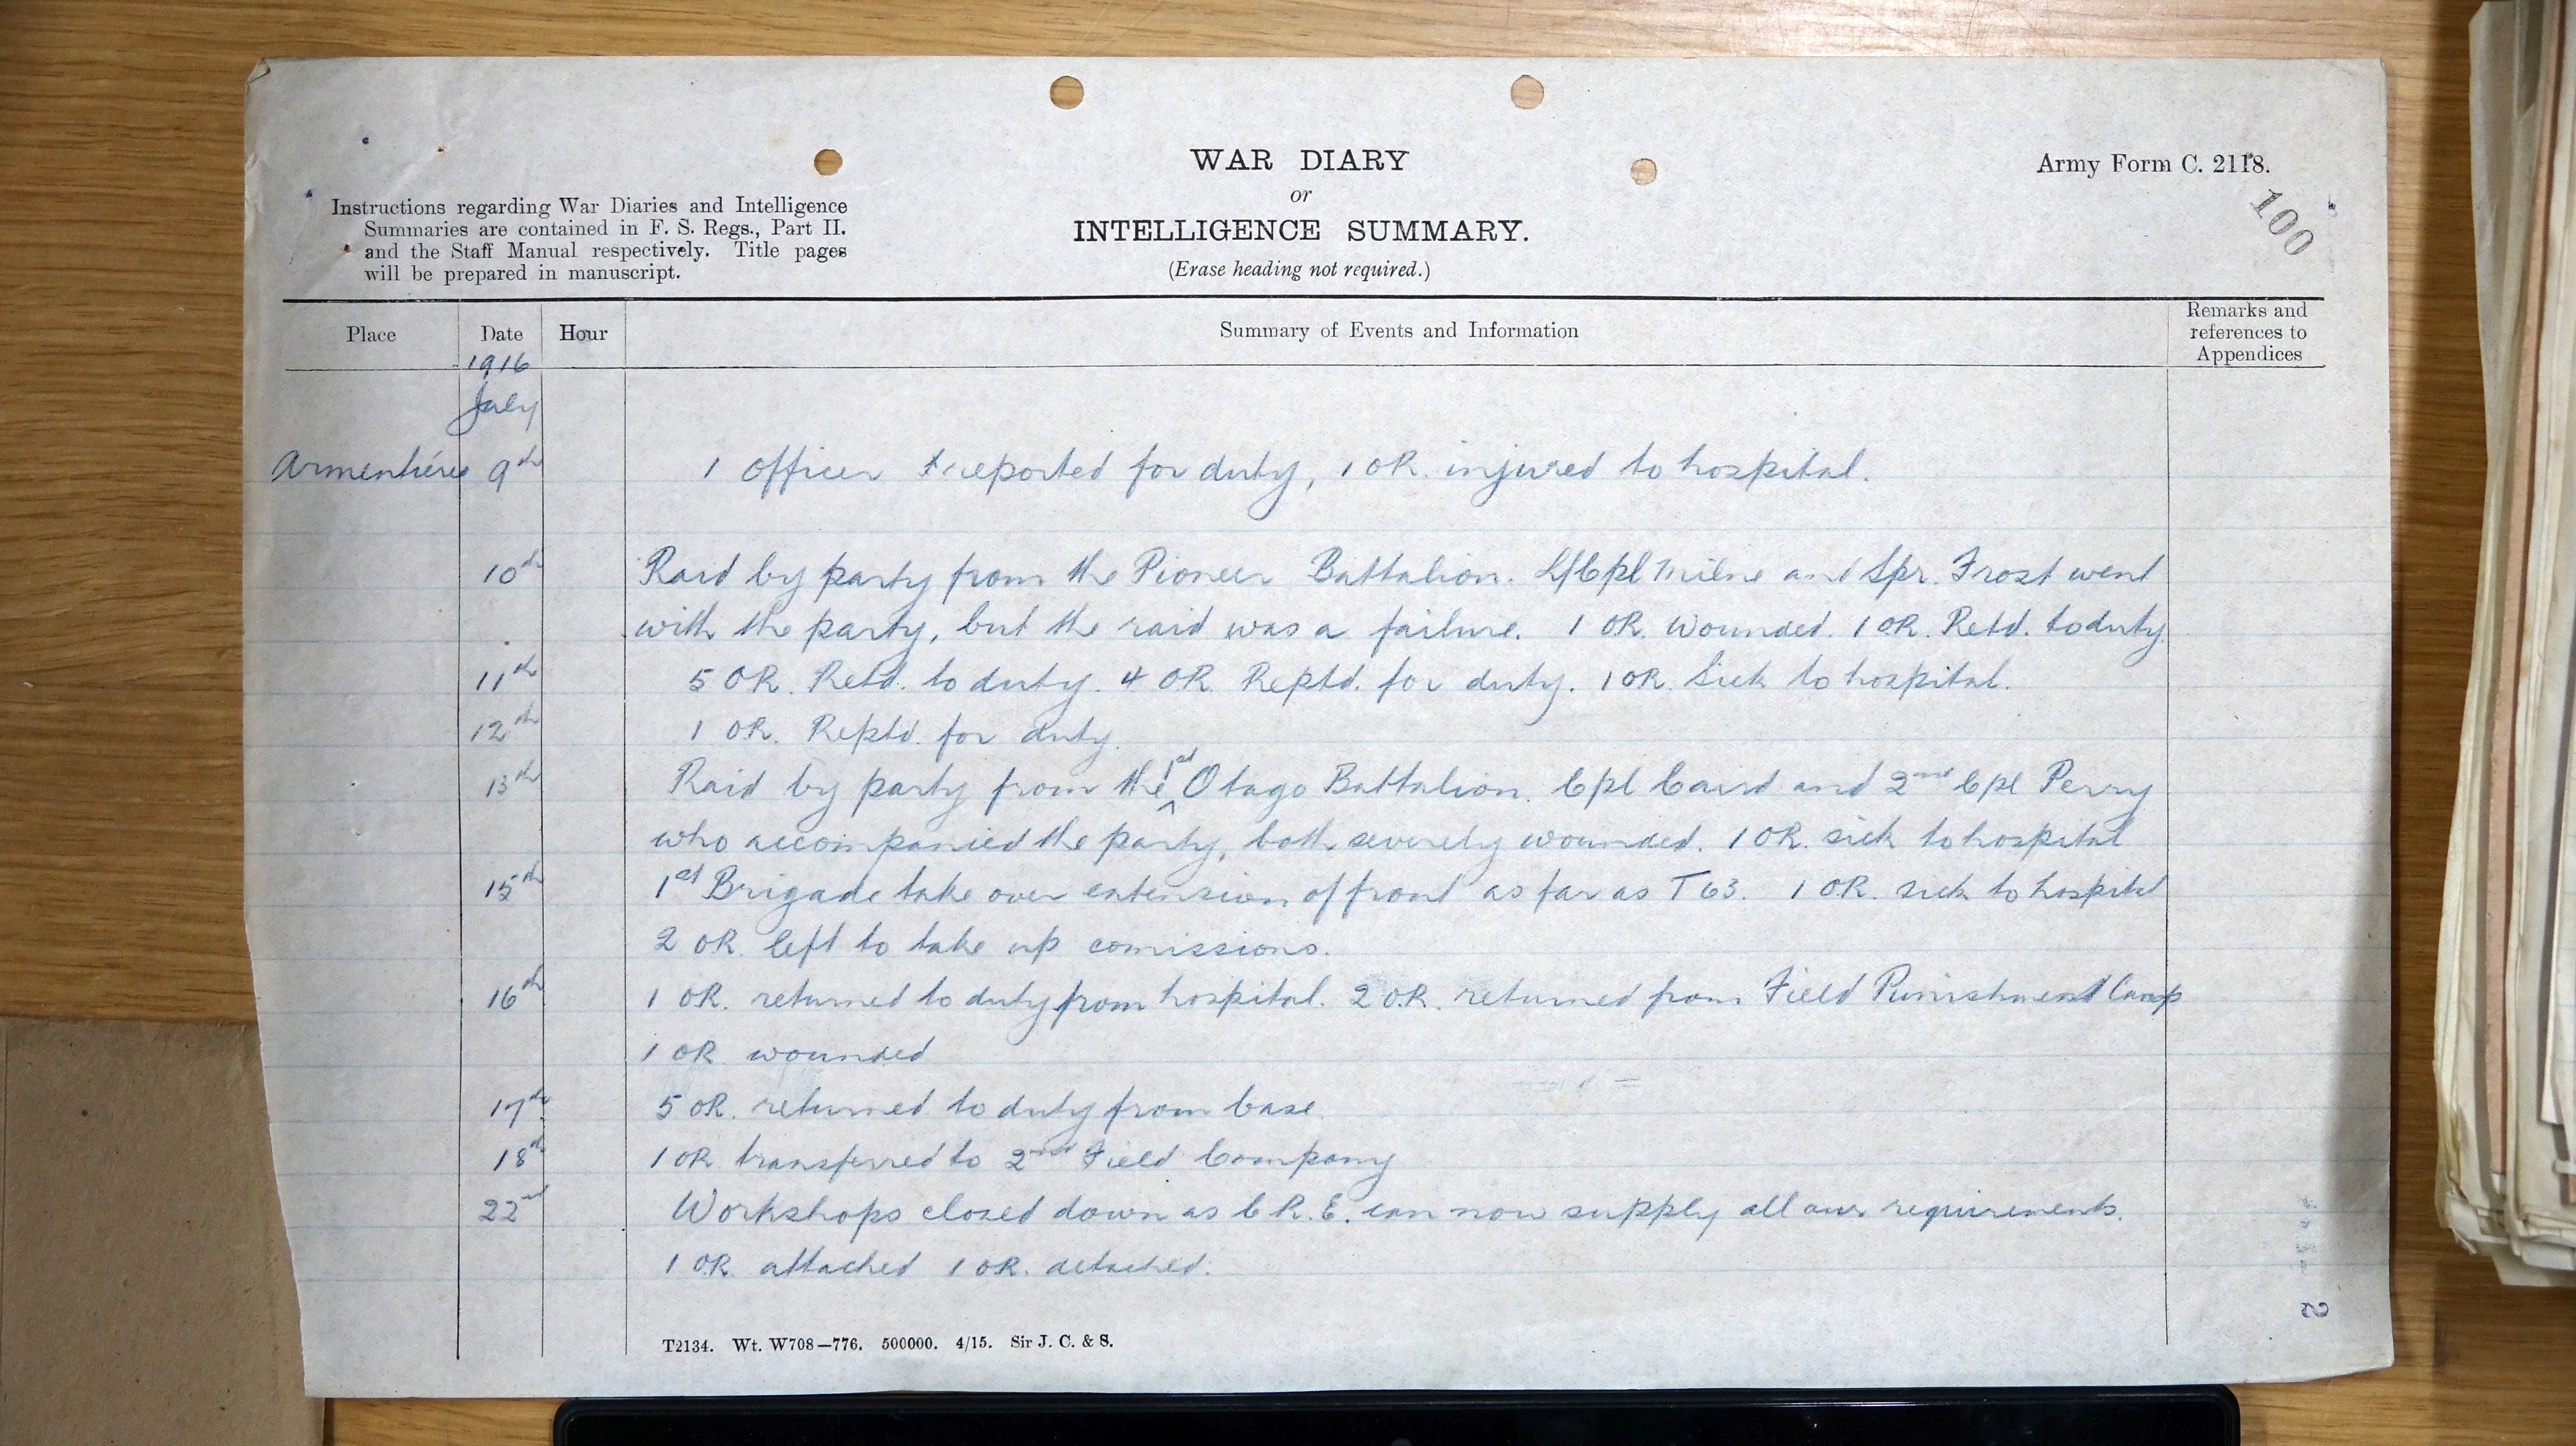 WAR DIARY
or
INTELLIGENCE SUMMARY.
(Erase heading not required.)
Army Form C. 2118.
100
Instructions regarding War Diaries and Intelligence
Summaries are contained in F. S. Regs., Part II.
and the Staff Manual respectively. Title pages
will be prepared in manuscript.
Place Date Hour Summary of Events and Information Remarks and references to Appendices
1916
July
Armentiéres 9th 1 Officer reported for duty, 1 OR. injured to hospital.
10th Raid by party from the Pioneer Battalion. L/Cpl Milne and Spr. Frost went
with the party, but the raid was a failure. 1 OR. Wounded. 1 OR. Retd. to duty
11th 5 OR. Retd. to duty. 4 OR. Reptd. for duty. 1 OR. Sick to hospital.
12th 1 OR. Reptd. for duty.
13th Raid by party from the 1st Otago Battalion. Cpl Caird and 2nd Cpl Perry
who accompanied the party, both severely wounded. 1 OR. sick to hospital
15th 1st Brigade take over extension of front as far as T 63. 1 O.R. sick to hospital
2 OR. left to take up comissions.
16th 1 OR. returned to duty from hospital. 2 O.R. returned from Field Punishment Camp
1 OR wounded
17th 5 OR. returned to duty from base
18th 1 OR transferred to 2nd Field Company
22nd Workshops closed down as C R. E. can now supply all our requirements.
1 OR. attached 1 OR. detached.
T2134. Wt. W708—776. 500000. 4/15. Sir J. C. & S.
2